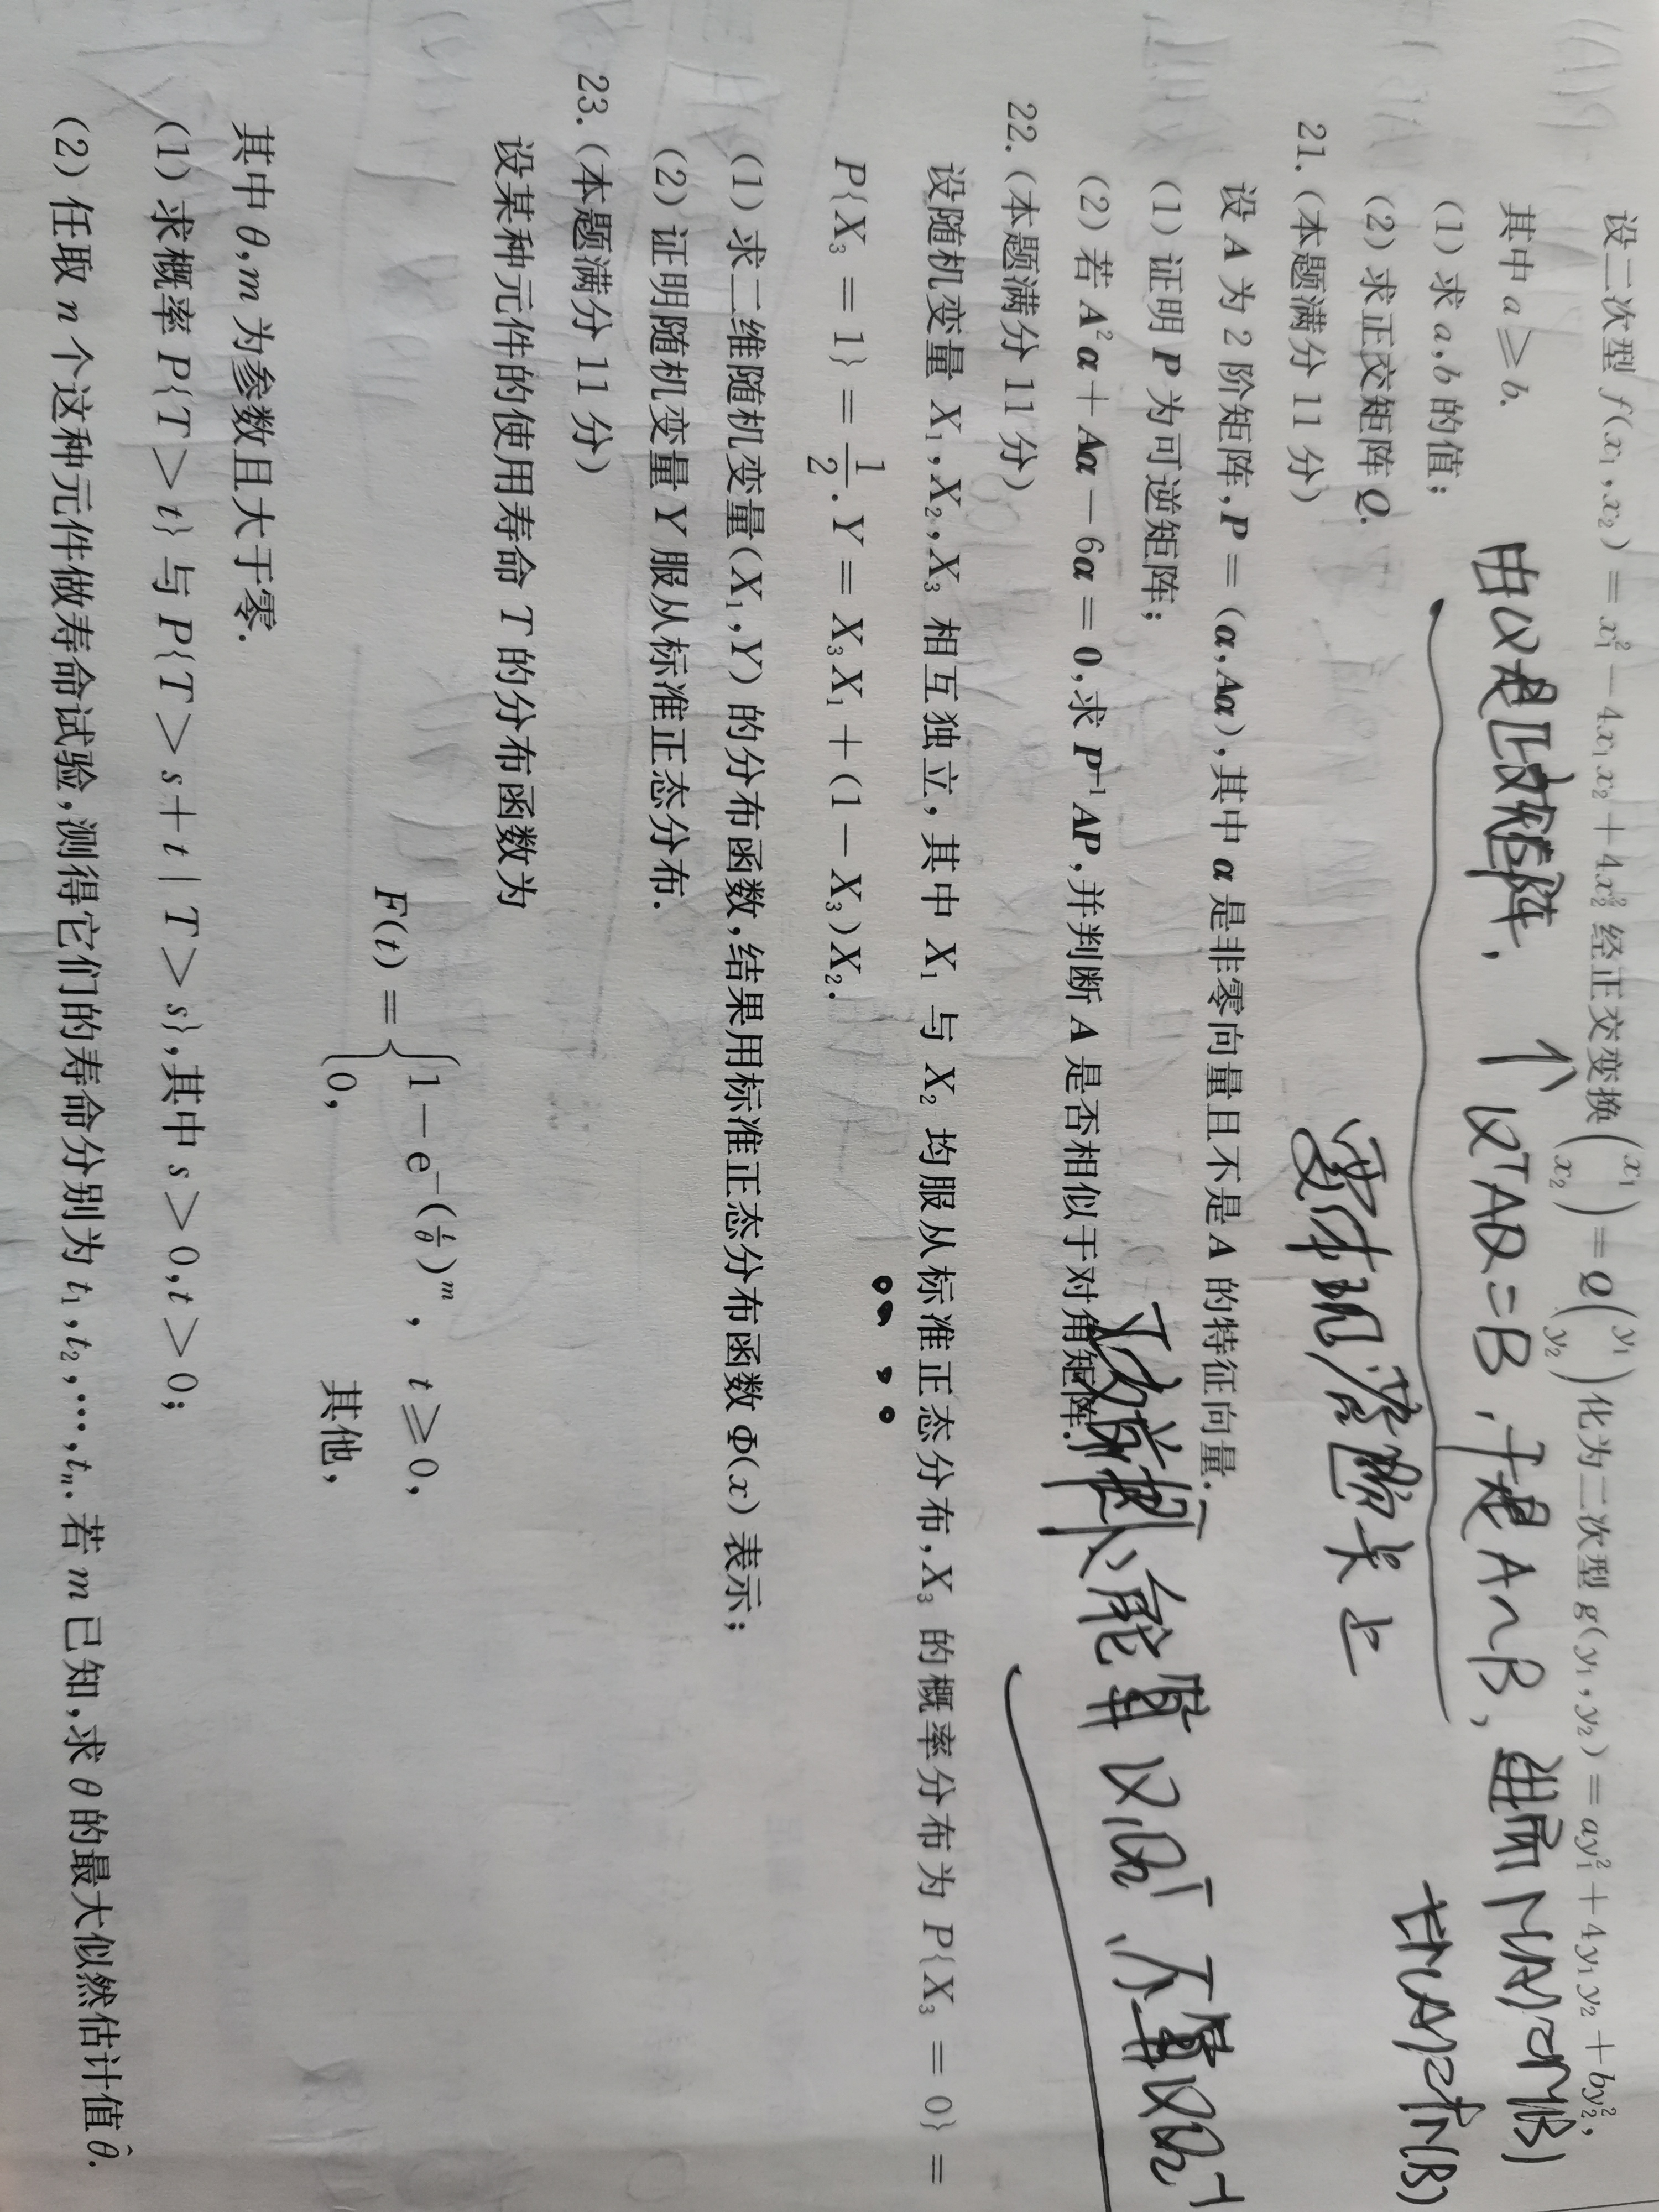 设二次型 f(x₁,x₂) = x₁² − 4x₁x₂ + 4x₂² 经正交变换 (x₁ x₂) = Q (y₁ y₂) 化为二次型 g(y₁,y₂) = ay₁² + 4y₁y₂ + by₂²,
其中 a ≥ b.
由Q是正交矩阵, 个 QᵀAQ=B, 于是 A~B,
(1) 求 a,b 的值;
(2) 求正交矩阵 Q.
21. (本题满分 11 分)
要体现答题卡上
设 A 为 2 阶矩阵, P = (α,Aα), 其中 α 是非零向量且不是 A 的特征向量.
(1) 证明 P 为可逆矩阵;
(2) 若 A²α + Aα − 6α = 0, 求 P⁻¹AP, 并判断 A 是否相似于对角矩阵.
22. (本题满分 11 分)
设随机变量 X₁,X₂,X₃ 相互独立, 其中 X₁ 与 X₂ 均服从标准正态分布, X₃ 的概率分布为 P{X₃ = 0} =
P{X₃ = 1} = 1/2. Y = X₃X₁ + (1 − X₃)X₂.
(1) 求二维随机变量(X₁,Y) 的分布函数, 结果用标准正态分布函数 Φ(x) 表示;
(2) 证明随机变量 Y 服从标准正态分布.
23. (本题满分 11 分)
设某种元件的使用寿命 T 的分布函数为
F(t) = { 1 − e^{−(t/θ)^m}, t ≥ 0,
0, 其他,
其中 θ,m 为参数且大于零.
(1) 求概率 P{T > t} 与 P{T > s + t | T > s}, 其中 s > 0, t > 0;
(2) 任取 n 个这种元件做寿命试验, 测得它们的寿命分别为 t₁,t₂,…,tₙ. 若 m 已知, 求 θ 的最大似然估计值 θ̂.